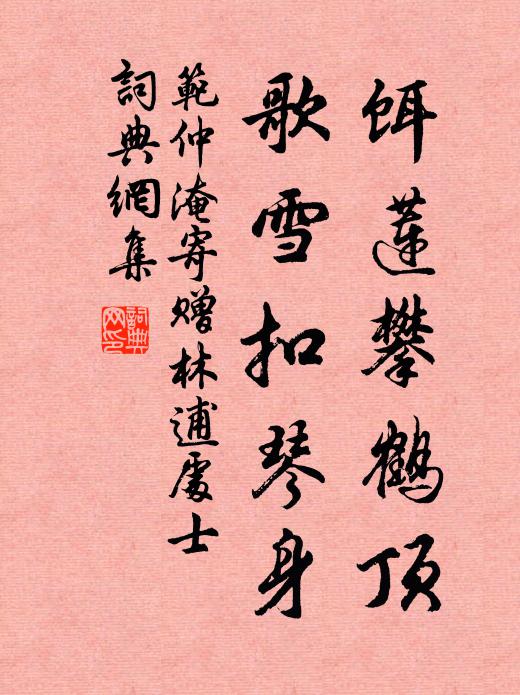 餌蓮攀鶴頂
歌雪扣琴身
範仲淹寄贈林逋處士
詞典網集
詞典
网印